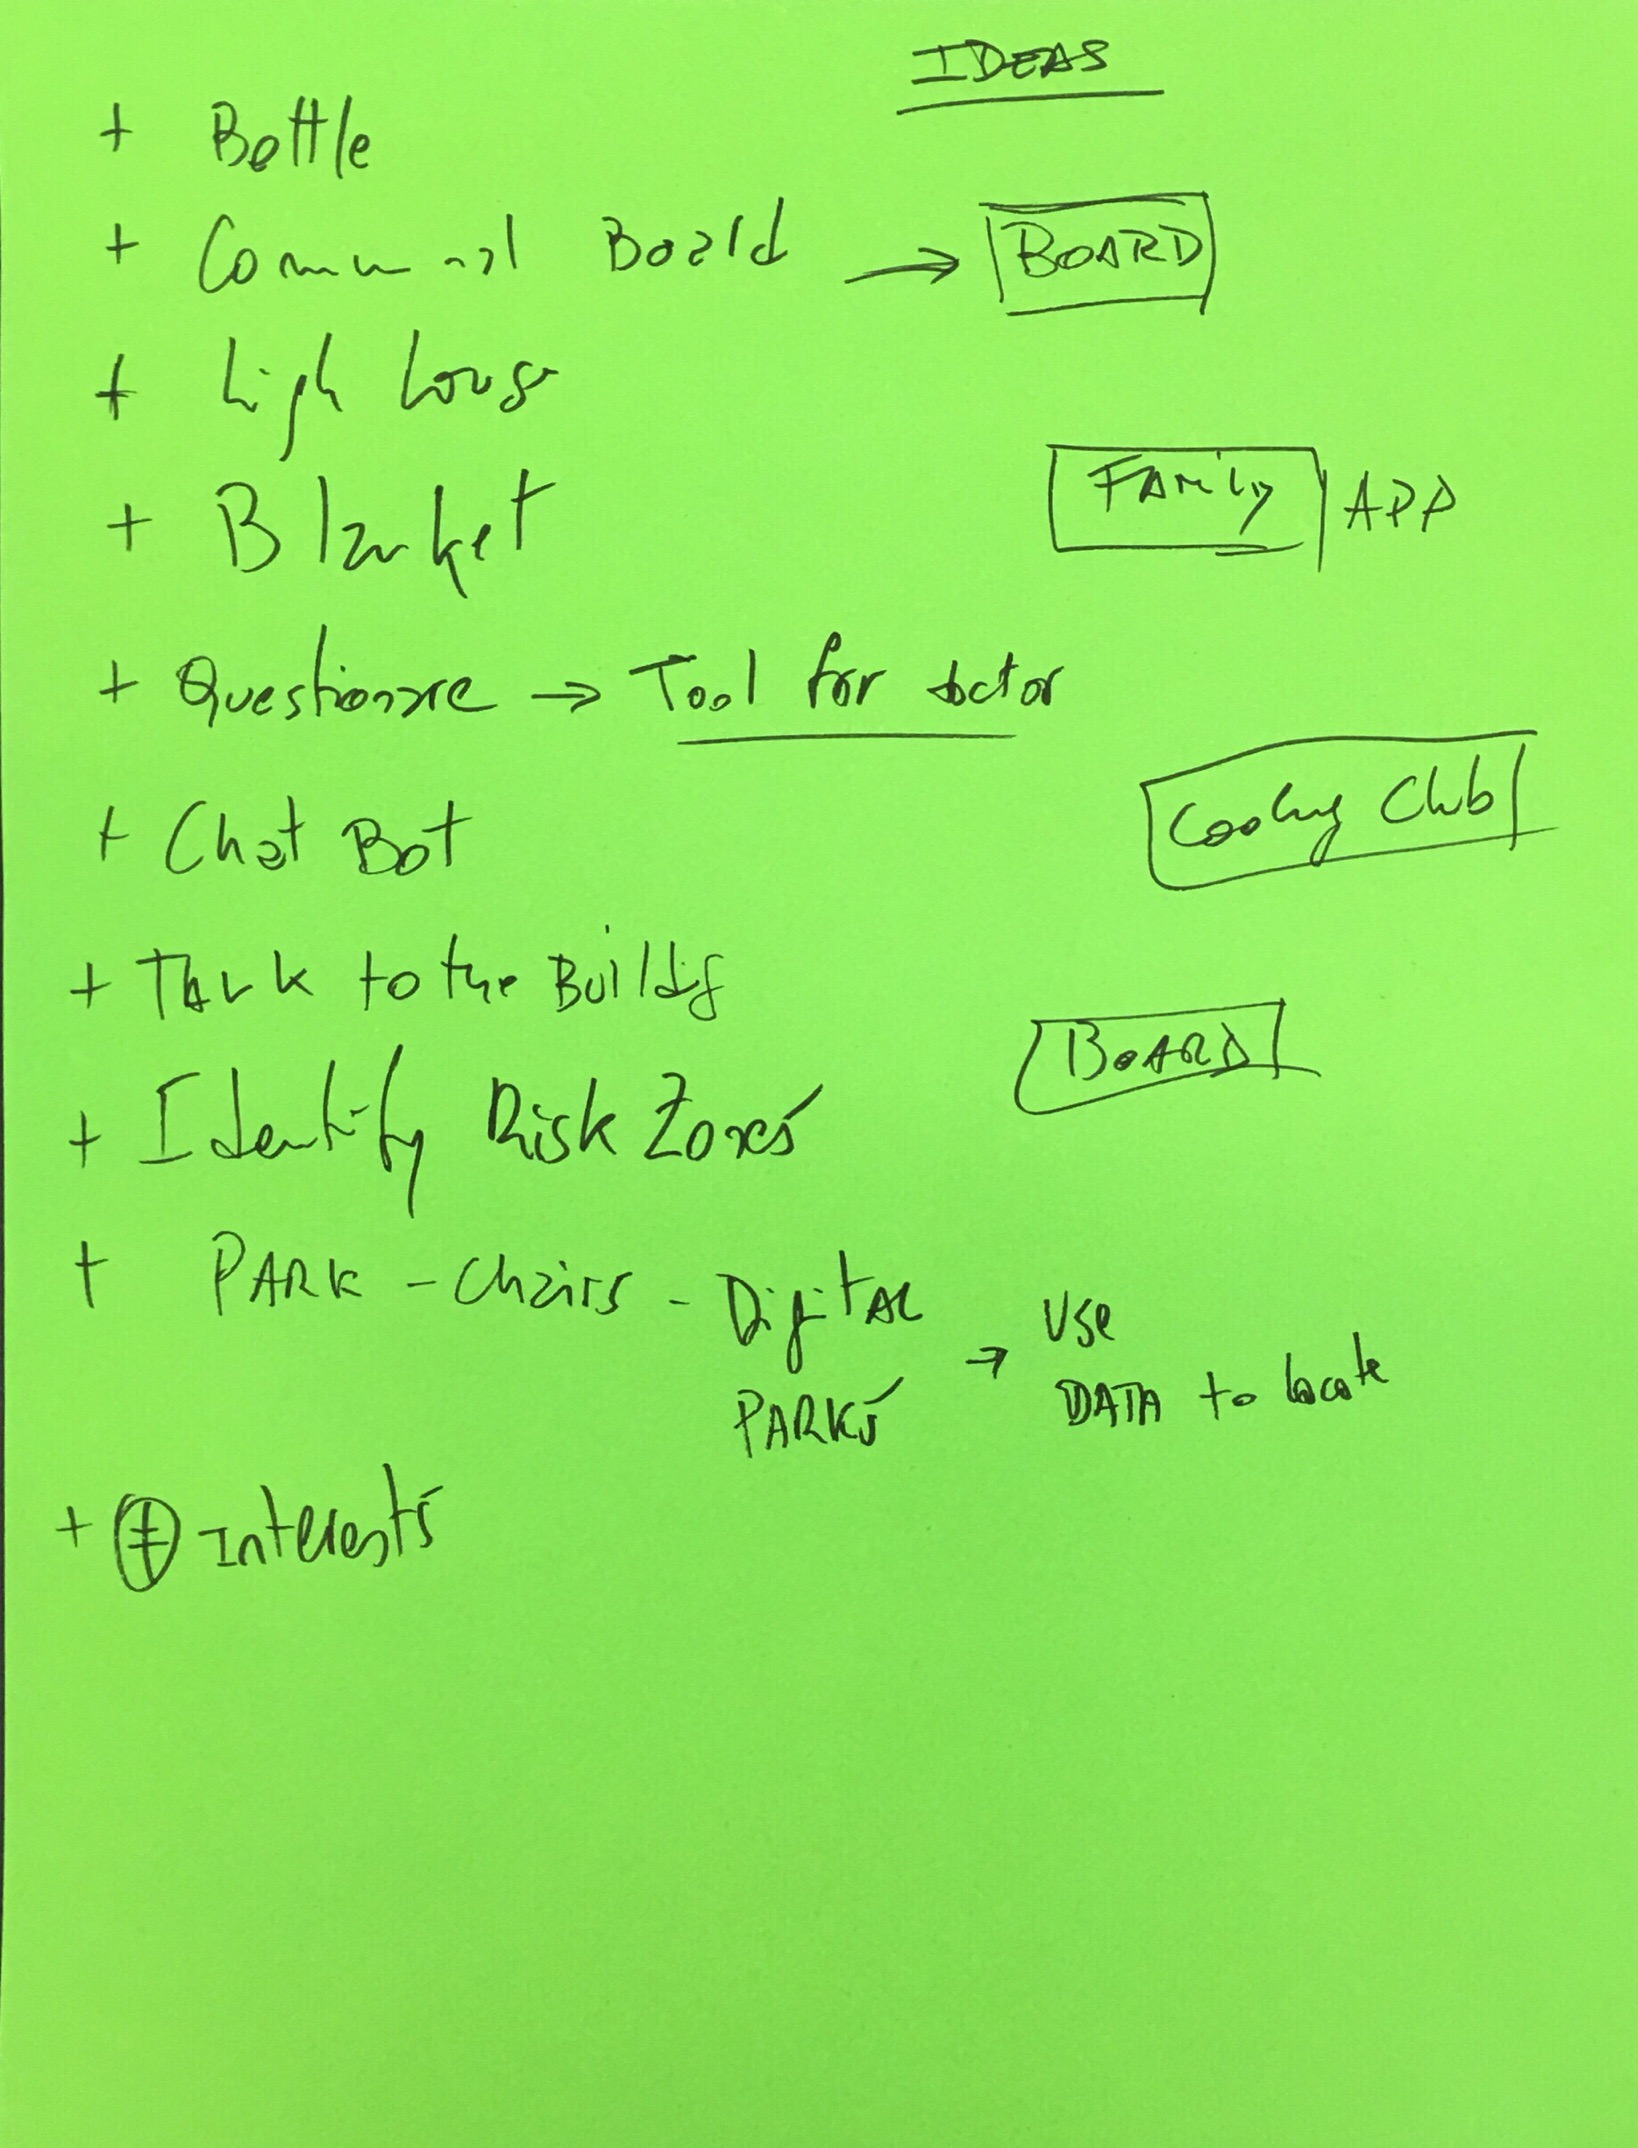 IDEAS
+ Bottle
+ Communal Board → BOARD
+ High house
+ Blanket
FAMily APP
+ Questionare → Tool for doctor
+ Chat Bot
Cooking Club
+ TALK to the Buildig
BOARD
+ Identify Risk Zones
+ PARK - Chairs - DigitAL
PARKS
→ Use
DATA to locate
+ Interests